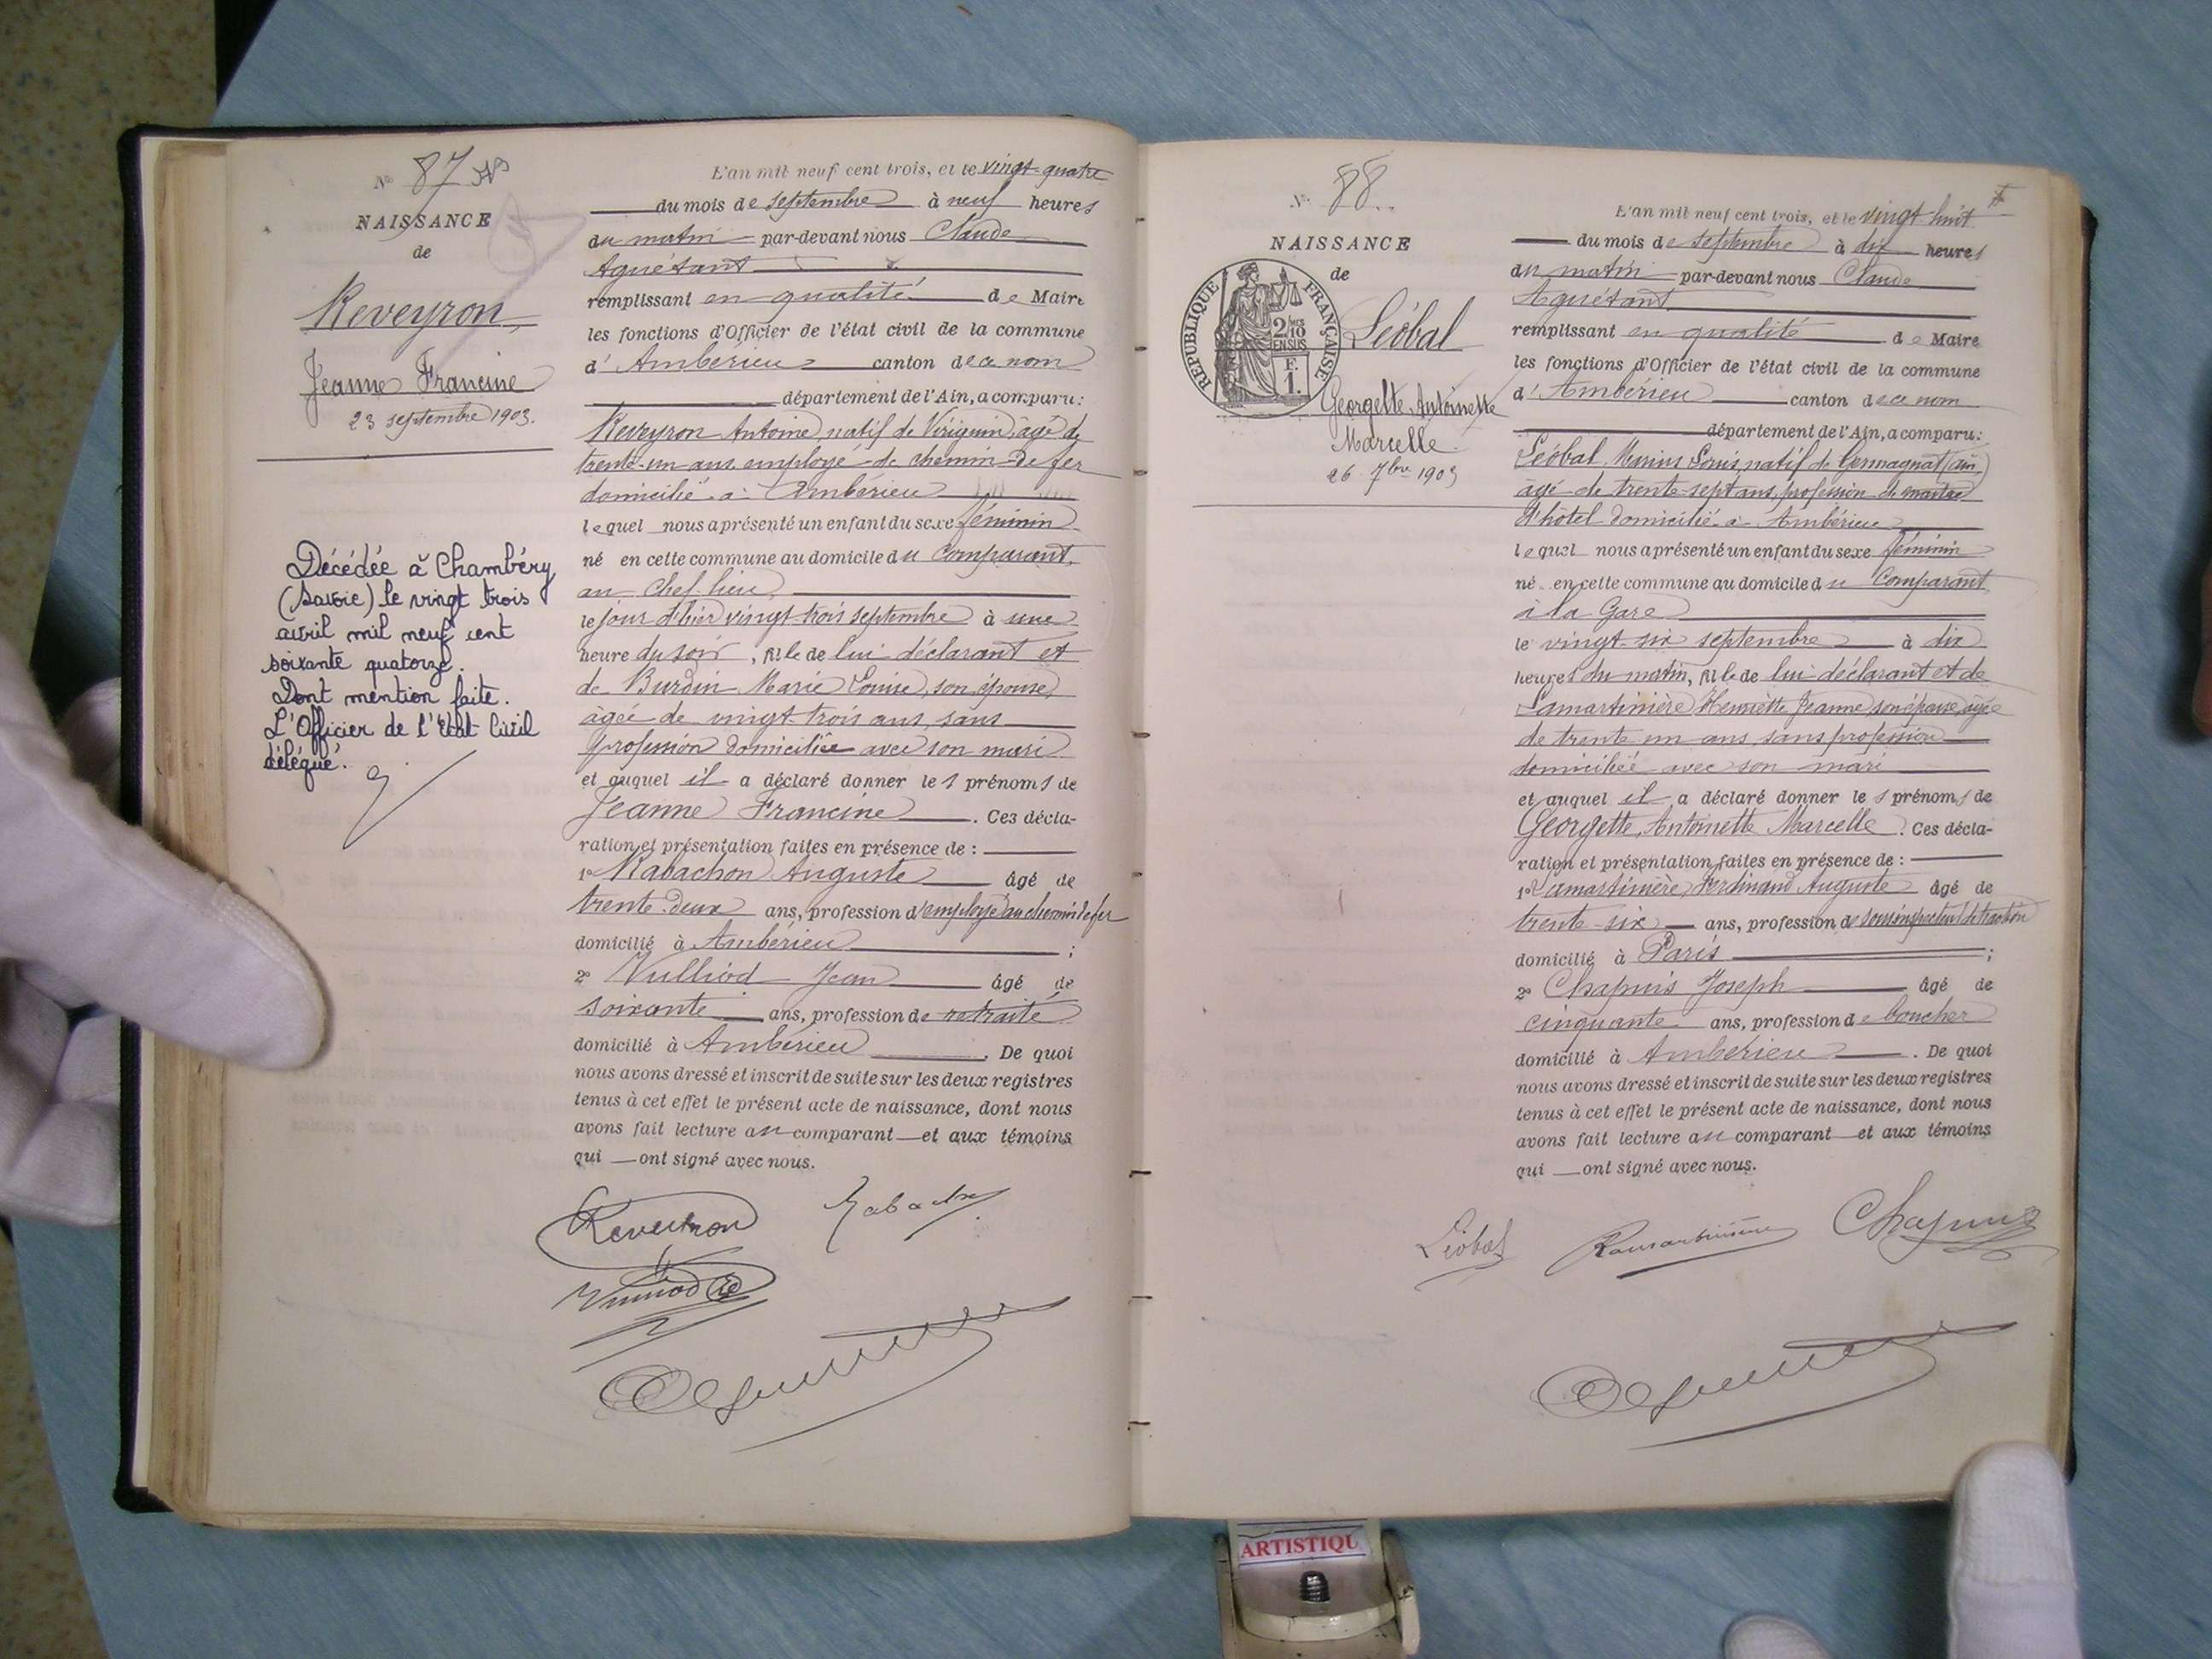 N° 87
NAISSANCE
de
Reveyron
Jeanne Francine
23 septembre 1903.
Décédée à Chambéry
(Savoie) le vingt trois
avril mil neuf cent
soixante quatorze.
Dont mention faite.
L'Officier de l'Etat Civil
délégué.
L'an mil neuf cent trois, et le vingt-quatre
du mois de septembre à neuf heures
du matin par-devant nous Claude
Aguétant
remplissant en qualité de Maire
les fonctions d'Officier de l'état civil de la commune
d'Ambérieu canton de ce nom
département de l'Ain, a comparu:
Reveyron Antoine, natif de Virignin, âgé de
trente-un ans, employé de chemin de fer
domicilié à Ambérieu
lequel nous a présenté un enfant du sexe féminin
né en cette commune au domicile du comparant,
au chef-lieu
le jour d'hier vingt-trois septembre à une
heure du soir, fille de lui déclarant et
de Burdin Marie Louise, son épouse,
âgée de vingt-trois ans, sans
profession domiciliée avec son mari
et auquel il a déclaré donner les prénoms de
Jeanne Francine. Ces décla-
ration et présentation faites en présence de :
1° Rabachon Auguste âgé de
trente-deux ans, profession d'employé au chemin de fer
domicilié à Ambérieu ;
2° Vulliod Jean âgé de
soixante ans, profession de retraité
domicilié à Ambérieu. De quoi
nous avons dressé et inscrit de suite sur les deux registres
tenus à cet effet le présent acte de naissance, dont nous
avons fait lecture au comparant et aux témoins
qui ont signé avec nous.
Reveyron
N° 88.
NAISSANCE
de
RÉPUBLIQUE FRANÇAISE
2/10
EN SUS
F.
1.
Léobal
Georgette Antoinette
Marcelle
26 7bre 1903
L'an mil neuf cent trois, et le vingt-huit
du mois de septembre à dix heures
du matin par-devant nous Claude
Aguétant
remplissant en qualité de Maire
les fonctions d'Officier de l'état civil de la commune
d'Ambérieu canton de ce nom
département de l'Ain, a comparu:
Léobal Marius Louis, natif de Germagnat (ain)
âgé de trente-sept ans, profession de maître
d'hôtel domicilié à Ambérieu
lequel nous a présenté un enfant du sexe féminin
né en cette commune au domicile du comparant
à la Gare
le vingt-six septembre à dix
heures du matin, fille de lui déclarant et de
Lamartinière Henriette Jeanne, son épouse, âgée
de trente-un ans, sans profession
domiciliée avec son mari
et auquel il a déclaré donner les prénoms de
Georgette, Antoinette Marcelle. Ces décla-
ration et présentation faites en présence de :
1° Lamartinière, Ferdinand Auguste âgé de
trente-six ans, profession de sous inspecteur de traction
domicilié à Paris ;
2° Chapuis Joseph âgé de
cinquante ans, profession de boucher
domicilié à Ambérieu. De quoi
nous avons dressé et inscrit de suite sur les deux registres
tenus à cet effet le présent acte de naissance, dont nous
avons fait lecture au comparant et aux témoins
qui ont signé avec nous.
Léobal Lamartinière Chapuis
ARTISTIQU